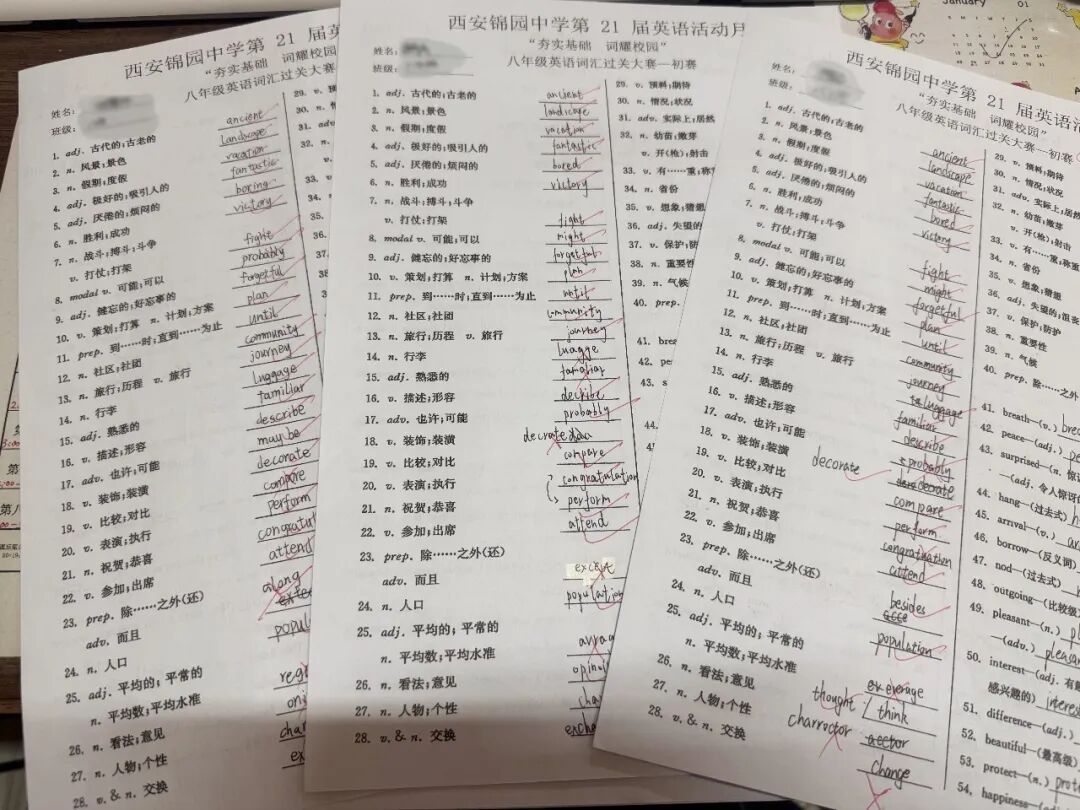 西安锦园中学第 21 届英
“夯实基础 词耀校园
八年级英语词汇过关大赛
姓名:
班级:
1. adj. 古代的;古老的 ancient
2. n. 风景;景色 landscape
3. n. 假期;度假 vacation
4. adj. 极好的;吸引人的 fantastic
5. adj. 厌倦的;烦闷的 boring
6. n. 胜利;成功 victory
7. n. 战斗;搏斗;斗争
v. 打仗;打架 fight
8. modal v. 可能;可以 probably
9. adj. 健忘的;好忘事的 forgetful
10. v. 策划;打算 n. 计划;方案 plan
11. prep. 到……时;直到……为止 until
12. n. 社区;社团 community
13. n. 旅行;历程 v. 旅行 journey
14. n. 行李 luggage
15. adj. 熟悉的 familiar
16. v. 描述;形容 describe
17. adv. 也许;可能 may be
18. v. 装饰;装潢 decorate
19. v. 比较;对比 compare
20. v. 表演;执行 perform
21. n. 祝贺;恭喜 congratul
22. v. 参加;出席 attend
23. prep. 除……之外(还) along
adv. 而且
24. n. 人口 popul
25. adj. 平均的; 平常的
n. 平均数;平均水准
26. n. 看法;意见
27. n. 人物;个性
28. v. & n. 交换 ex
29. v. 预
30. n. 情
31. adv
32. n.
33. v
34.
35.
36.
西安锦园中学第 21 届英语活动月
“夯实基础 词耀校园”
八年级英语词汇过关大赛—初赛
姓名:
班级:
1. adj. 古代的;古老的 ancient
2. n. 风景;景色 landscape
3. n. 假期;度假 vacation
4. adj. 极好的;吸引人的 fantastic
5. adj. 厌倦的;烦闷的 bored
6. n. 胜利;成功 victory
7. n. 战斗;搏斗;斗争
v. 打仗;打架 fight
8. modal v. 可能;可以 might
9. adj. 健忘的;好忘事的 forgetful
10. v. 策划;打算 n. 计划;方案 plan
11. prep. 到……时;直到……为止 until
12. n. 社区;社团
13. n. 旅行;历程 v. 旅行 journey
14. n. 行李
15. adj. 熟悉的
16. v. 描述;形容
17. adv. 也许;可能 probably
18. v. 装饰;装潢
19. v. 比较;对比 compare
20. v. 表演;执行 congratulation
21. n. 祝贺;恭喜 perform
22. v. 参加;出席 attend
23. prep. 除……之外(还)
adv. 而且 except
24. n. 人口 population
25. adj. 平均的; 平常的
n. 平均数;平均水准
26. n. 看法;意见
27. n. 人物;个性 cha
28. v. & n. 交换 excha
29. v. 预料;期待
30. n. 情况;状况
31. adv. 实际上;居然
32. n. 幼苗;嫩芽
v. 开(枪);射击
33. v. 有……重;称
34. n. 省份
35. v. 想象;猜想
36. adj. 失望的
37. v. 保护;防
38. n. 重要性
39. n. 气候
40. prep. 除
41. brea
42. pe
43. s
44.
西安锦园中学第 21 届英语活
“夯实基础 词耀校园”
八年级英语词汇过关大赛—初赛
姓名:
班级:
1. adj. 古代的;古老的 ancient
2. n. 风景;景色 landscape
3. n. 假期;度假 vacation
4. adj. 极好的;吸引人的 fantastic
5. adj. 厌倦的;烦闷的 bored
6. n. 胜利;成功 victory
7. n. 战斗;搏斗;斗争
v. 打仗;打架 fight
8. modal v. 可能;可以 might
9. adj. 健忘的;好忘事的 forgetful
10. v. 策划;打算 n. 计划;方案 plan
11. prep. 到……时;直到……为止 until
12. n. 社区;社团 community
13. n. 旅行;历程 v. 旅行 journey
14. n. 行李 luggage
15. adj. 熟悉的 familiar
16. v. 描述;形容 describe
17. adv. 也许;可能 probably
18. v. 装饰;装潢 decorate
19. v. 比较;对比 compare
20. v. 表演;执行 perform
21. n. 祝贺;恭喜
22. v. 参加;出席 attend
23. prep. 除……之外(还)
adv. 而且 besides
24. n. 人口 population
25. adj. 平均的; 平常的
n. 平均数;平均水准
26. n. 看法;意见 thought think
27. n. 人物;个性 charroctor
28. v. & n. 交换 change
29. v. 预料;期待
30. n. 情况;状况
31. adv. 实际上;居
32. n. 幼苗;嫩芽
v. 开(枪);射击
33. v. 有……重;称重
34. n. 省份
35. v. 想象;猜想
36. adj. 失望的;沮丧
37. v. 保护;防护
38. n. 重要性
39. n. 气候
40. prep. 除……之外
41. breath—(v.) brea
42. peace—(adj.)
43. surprised—(n. 惊讶
—(adj. 令人惊讶
44. hang—(过去式)
45. arrival—(v.) ar
46. borrow—(反义词)
47. nod—(过去式)
48. outgoing—(比较级
49. pleasant—(n.) pl
—(adv.) pleasan
50. interest—(adj. 有趣
感兴趣的) interes
51. difference—(adj.)
52. beautiful—(最高级)
53. protect—(n.) prote
54. happiness
January 01